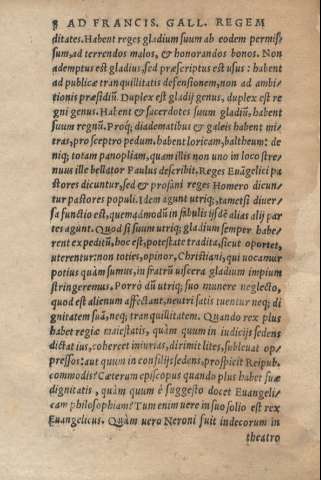 8 AD FRANCIS. GALL. REGEM
ditates. Habent reges gladium suum ab eodem permis/
sum, ad terrendos malos, & honorandos bonos. Non
ademptus est gladius, sed præscriptus est usus: habent
ad publicæ tranquillitatis defensionem, non ad ambi
tionis præsidiũ. Duplex est gladij genus, duplex est re
gni genus. Habent & sacerdotes suum gladiũ, habent
suum regnũ. Proq; diadematibus & galeis habent mi
tras, pro sceptro pedum, habent loricam, baltheum: de
niq; totam panopliam, quam illis non uno in loco stre
nuus ille bellator Paulus describit. Reges Euãgelici pa
stores dicuntur, sed & profani reges Homero dicun/
tur pastores populi. Idem agunt utriq;, tametsi diuer/
sa functio est, quemadmodũ in fabulis ijsdẽ alias alij par
tes agunt. Quod si suum utriq; gladium semper habe/
rent expeditũ, hoc est, potestate tradita, sicut oportet,
uterentur: non toties, opinor, Christiani, qui uocamur
potius quàm sumus, in fratrũ uiscera gladium impium
stringeremus. Porrò dũ utriq; suo munere neglecto,
quod est alienum affectant, neutri satis tuentur neq; di
gnitatem suã, neq; tranquillitatem. Quando rex plus
habet regiæ maiestatis, quàm quum in iudicijs sedens
dictat ius, cohercet iniurias, dirimit lites, subleuat op/
pressos: aut quum in consilijs sedens, prospicit Reipub.
commodis? Cæterum episcopus quando plus habet suæ
dignitatis, quàm quum è suggesto docet Euangeli/
cam philosophiam? Tum enim uere in suo solio est rex
Euangelicus. Quàm uero Neroni fuit indecorum in
theatro